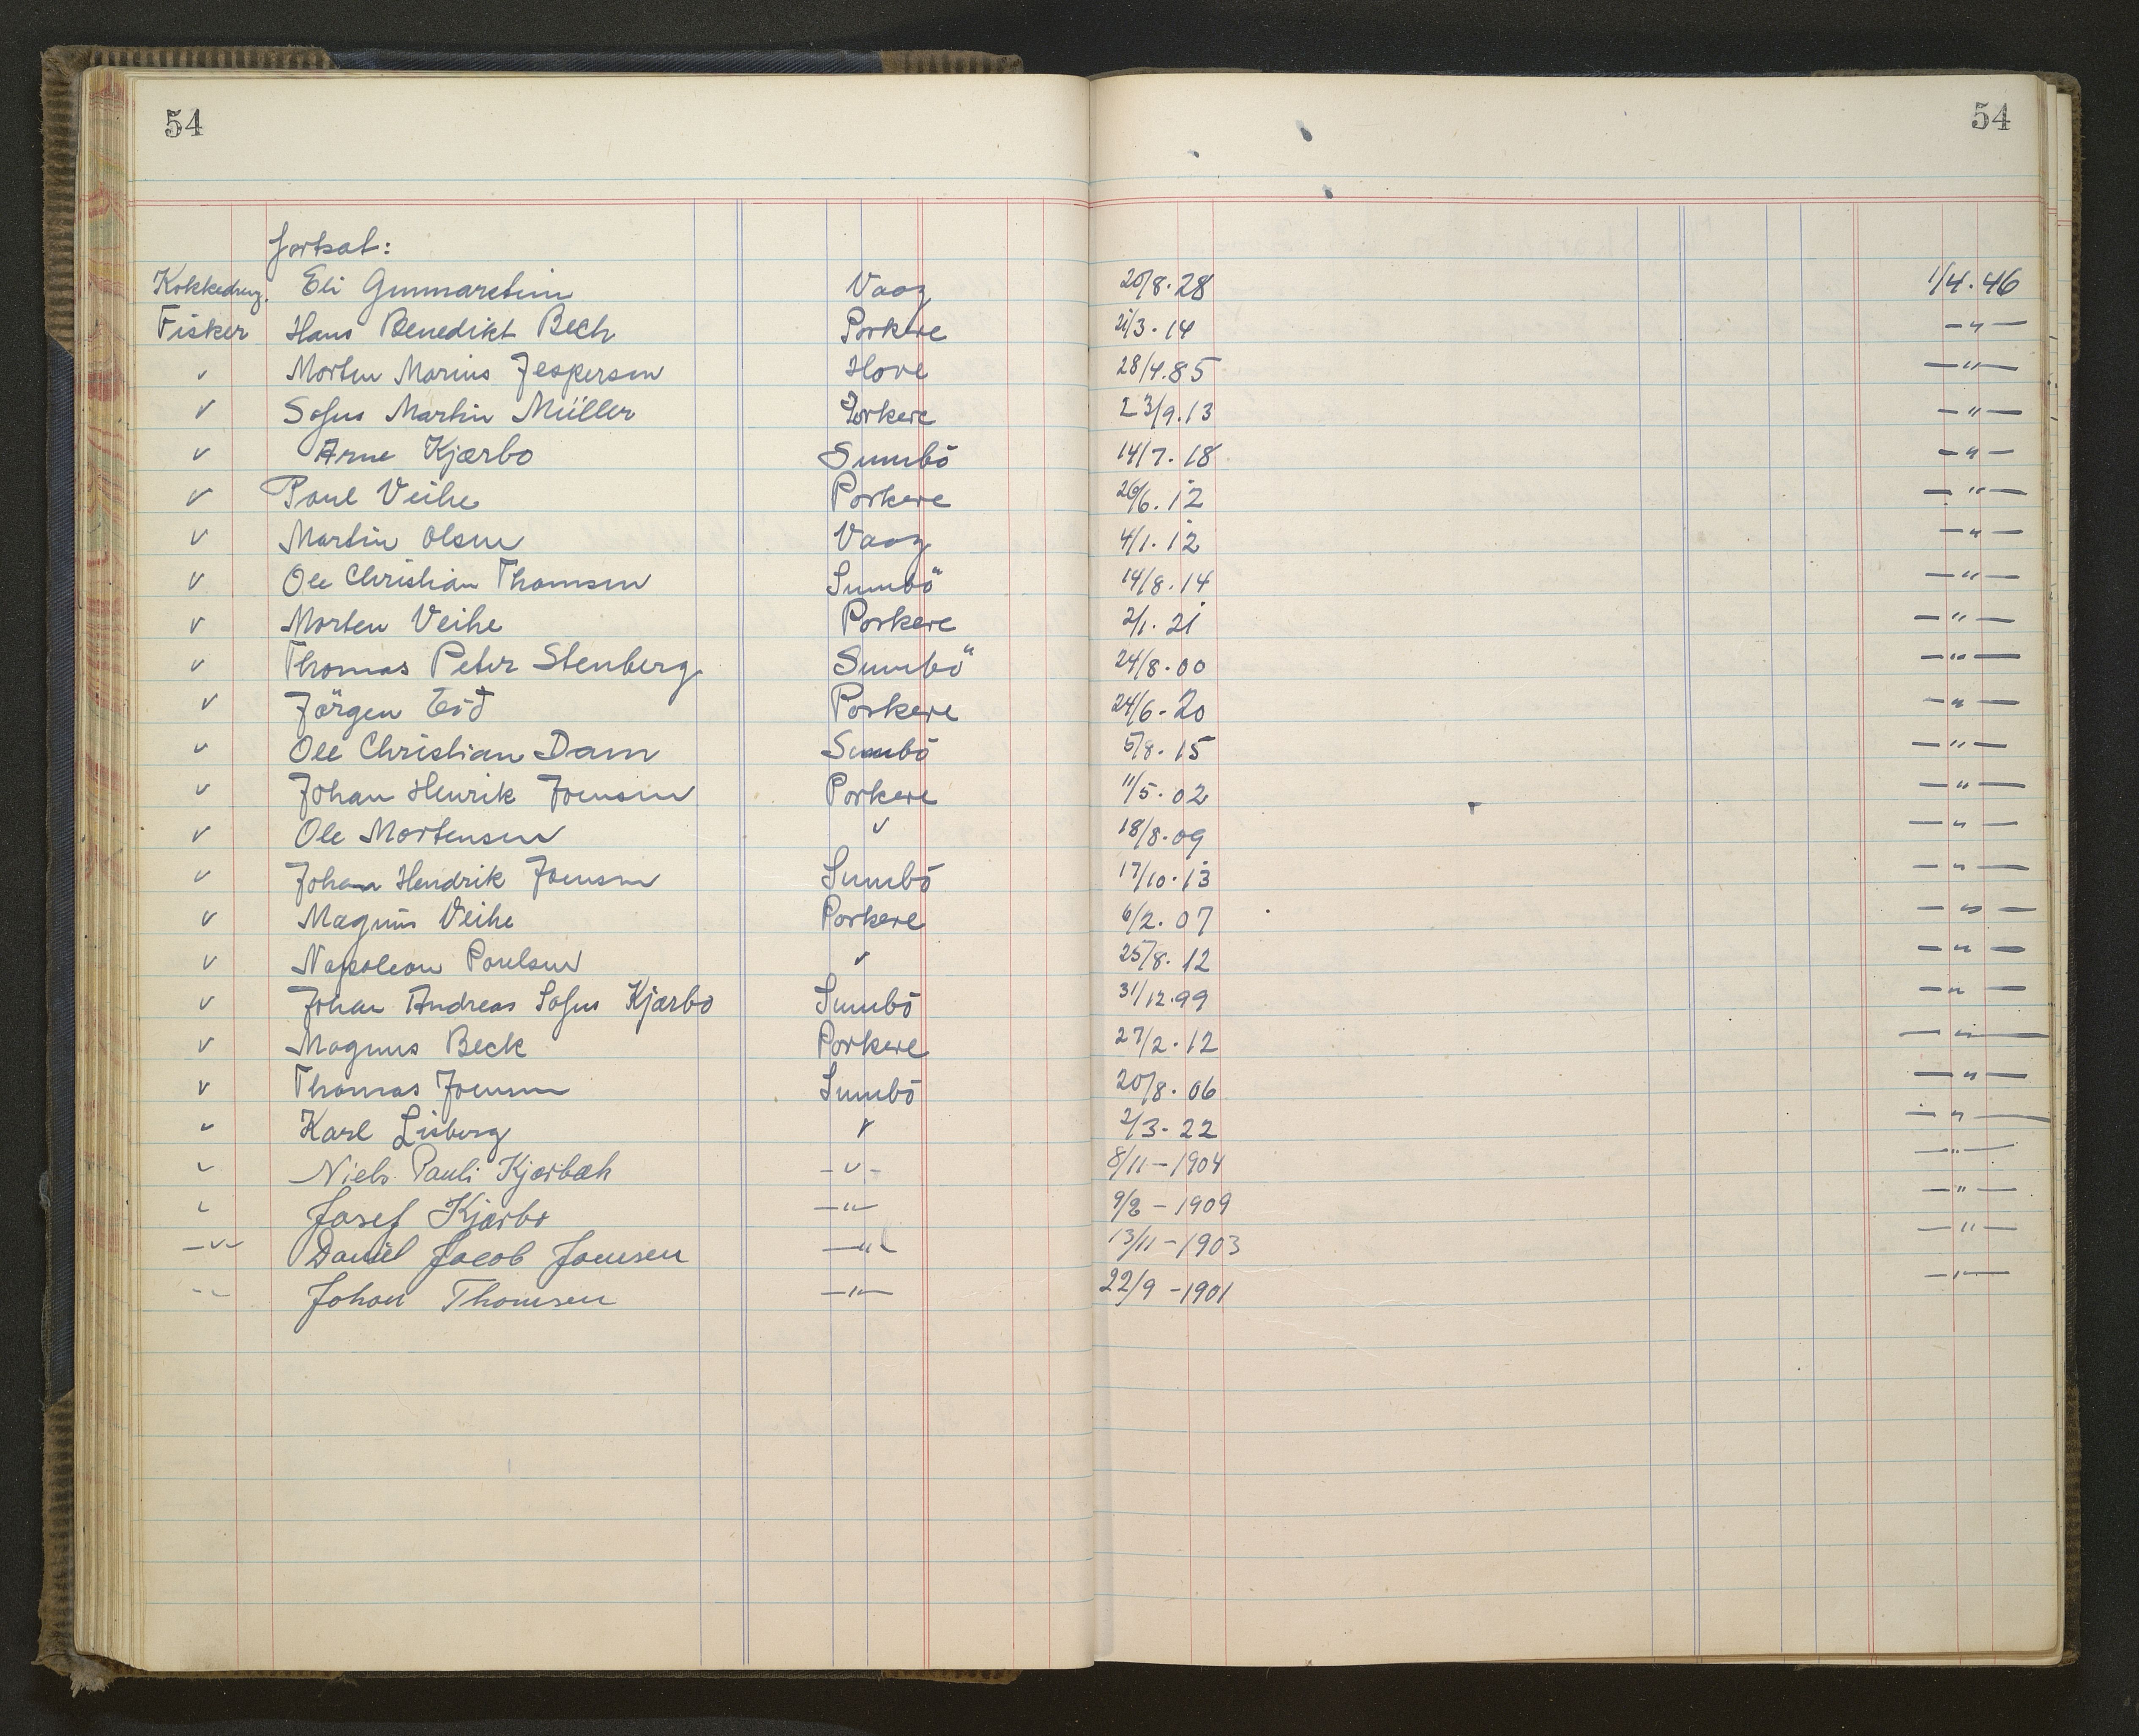 54 54
fortsat:
Kokkedreng. Eli Gunnarstein Vaag 20/8.28 1/4.46
Fisker Hans Benedikt Bech Porkere 21/3.14 — " —
v Morten Marius Jespersen Hove 28/4.85 — " —
v Sofus Martin Müller Porkere 23/9.13 — " —
v Arne Kjærbo Sumbö 14/7.18 — " —
v Poul Veihe Porkere 26/6.12 — " —
v Martin Olsen Vaag 4/1.12 — " —
v Ole Christian Thomsen Sumbö 14/8.14 — " —
v Morten Veihe Porkere 2/1.21 — " —
v Thomas Peter Stenberg Sumbö 24/8.00 — " —
v Jörgen Eid Porkere 24/6.20 — " —
v Ole Christian Dam Sumbö 5/8.15 — " —
v Johan Henrik Joensen Porkere 11/5.02 — " —
v Ole Mortensen v 18/8.09 — " —
v Johan Hendrik Joensen Sumbö 17/10.13 — " —
v Magnus Veihe Porkere 6/2.07 — " —
v Napoleon Poulsen v 25/8.12 — " —
v Johan Andreas Sofus Kjærbo Sumbö 31/12.99 — " —
v Magnus Beck Porkere 27/2.12 — " —
v Thomas Joensen Sumbö 20/8.06 — " —
v Karl Lisberg v 2/3.22 — " —
v Niels Pauli Kjærbæk - v - 8/11-1904 — " —
v Josef Kjærbo — " — 9/2-1909 — " —
— v — Daniel Jacob Joensen — " — 13/11-1903 — " —
- - Johan Thomsen — " — 22/9-1901 — " —